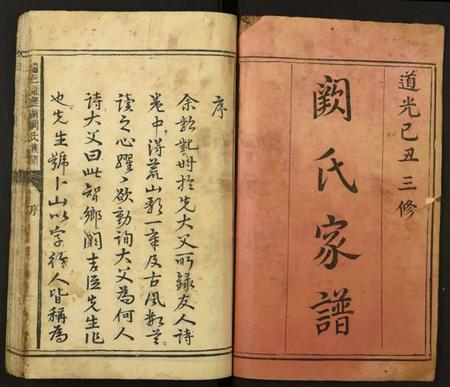 道光己丑三修
闕氏家譜
序
余齠齔時於先大父所錄友人詩
卷中得荒山歌一章及古風數首
讀之心躍躍欲動詢大父為何人
詩大父曰此智鄉闕吉臣先生作
也先生號卜山以字行人皆稱為
闕氏族譜
序